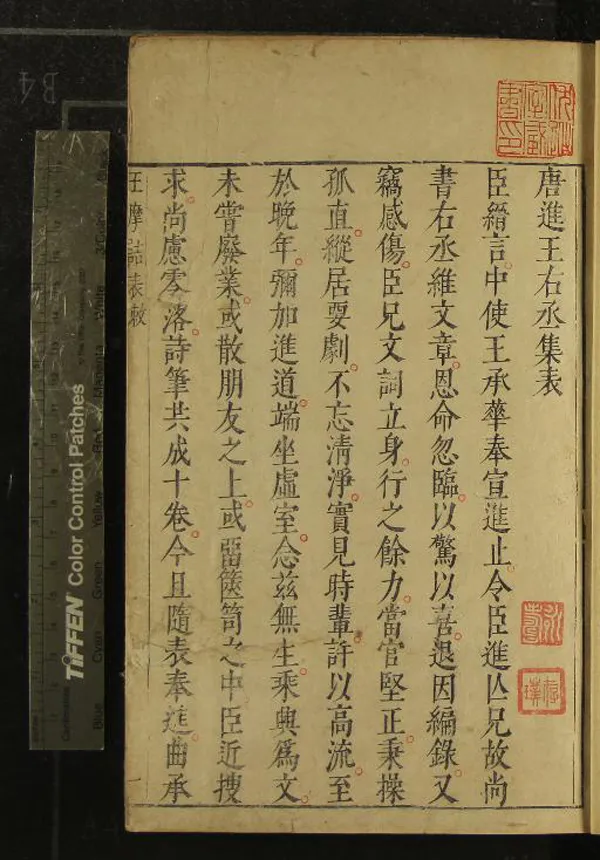 唐進王右丞集表
臣縉言中使王承華奉宣進止令臣進亾兄故尚
書右丞維文章恩命忽臨以驚以喜退因編錄又
竊感傷臣兄文詞立身行之餘力當官堅正秉操
孤直縱居要劇不忘清淨實見時輩許以高流至
於晚年彌加進道端坐虛室念茲無生乘興為文
未嘗廢業或散朋友之上或畱篋笥之中臣近搜
求尚慮零落詩筆共成十卷今且隨表奉進曲承
王摩詰表敕
一
B4
TIFFEN Color Control Patches
Blue
Cyan
Green
Yellow
Red
Magenta
White